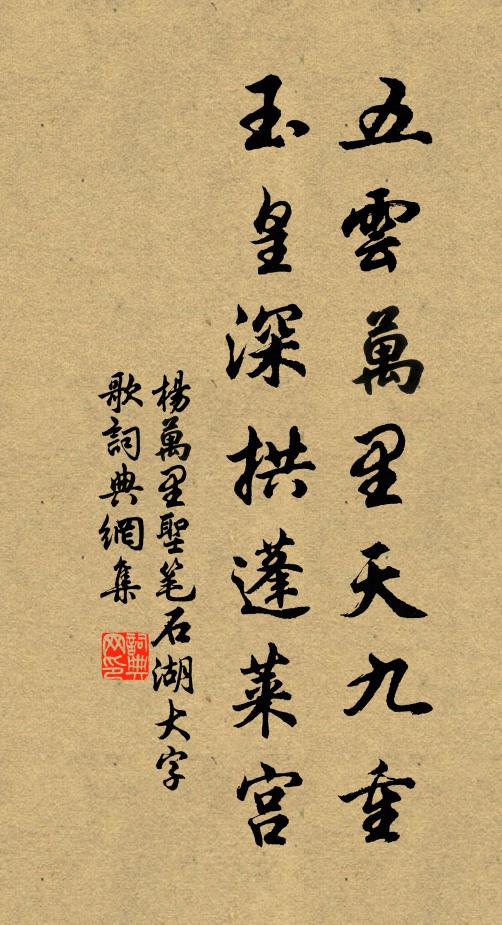 五雲萬里天九重
玉皇深拱蓬萊宮
楊萬里聖笔石湖大字
歌詞典網集
詞典网印